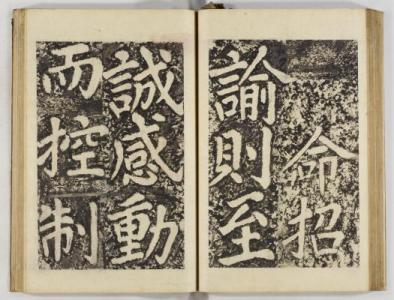 命招
諭則至
誠感動
而控制